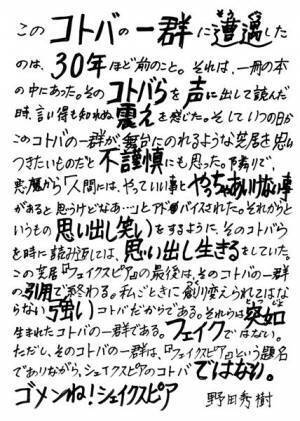 このコトバの一群に遭遇した
のは、30年ほど前のこと。それは、一冊の本
の中にあった。そのコトバらを声に出して読んだ
時、言い得も知れぬ震えを感じた。そしていつの日か
このコトバの一群が舞台にのれるような芝居を思い
つきたいものだと不謹慎にも思った。隣りで、
悪魔から「人間には、やっていい事とやっちゃあいけない事
があると思うけどなあ…」とアドバイスされた。それから
というもの思い出し笑いをするように、そのコトバら
を時に読み返しては、思い出し生きるをしていた。
この芝居『フェイクスピア』の最後は、そのコトバの一群
の引用で終わる。私ごときに創り変えられてはな
らない強いコトバだからである。それらは突如
生まれたコトバの一群である。フェイクではない。
ただし、そのコトバの一群は、『フェイクスピア』という題名
でありながら、シェイクスピアのコトバではない。
ゴメンね!シェイクスピア 野田秀樹